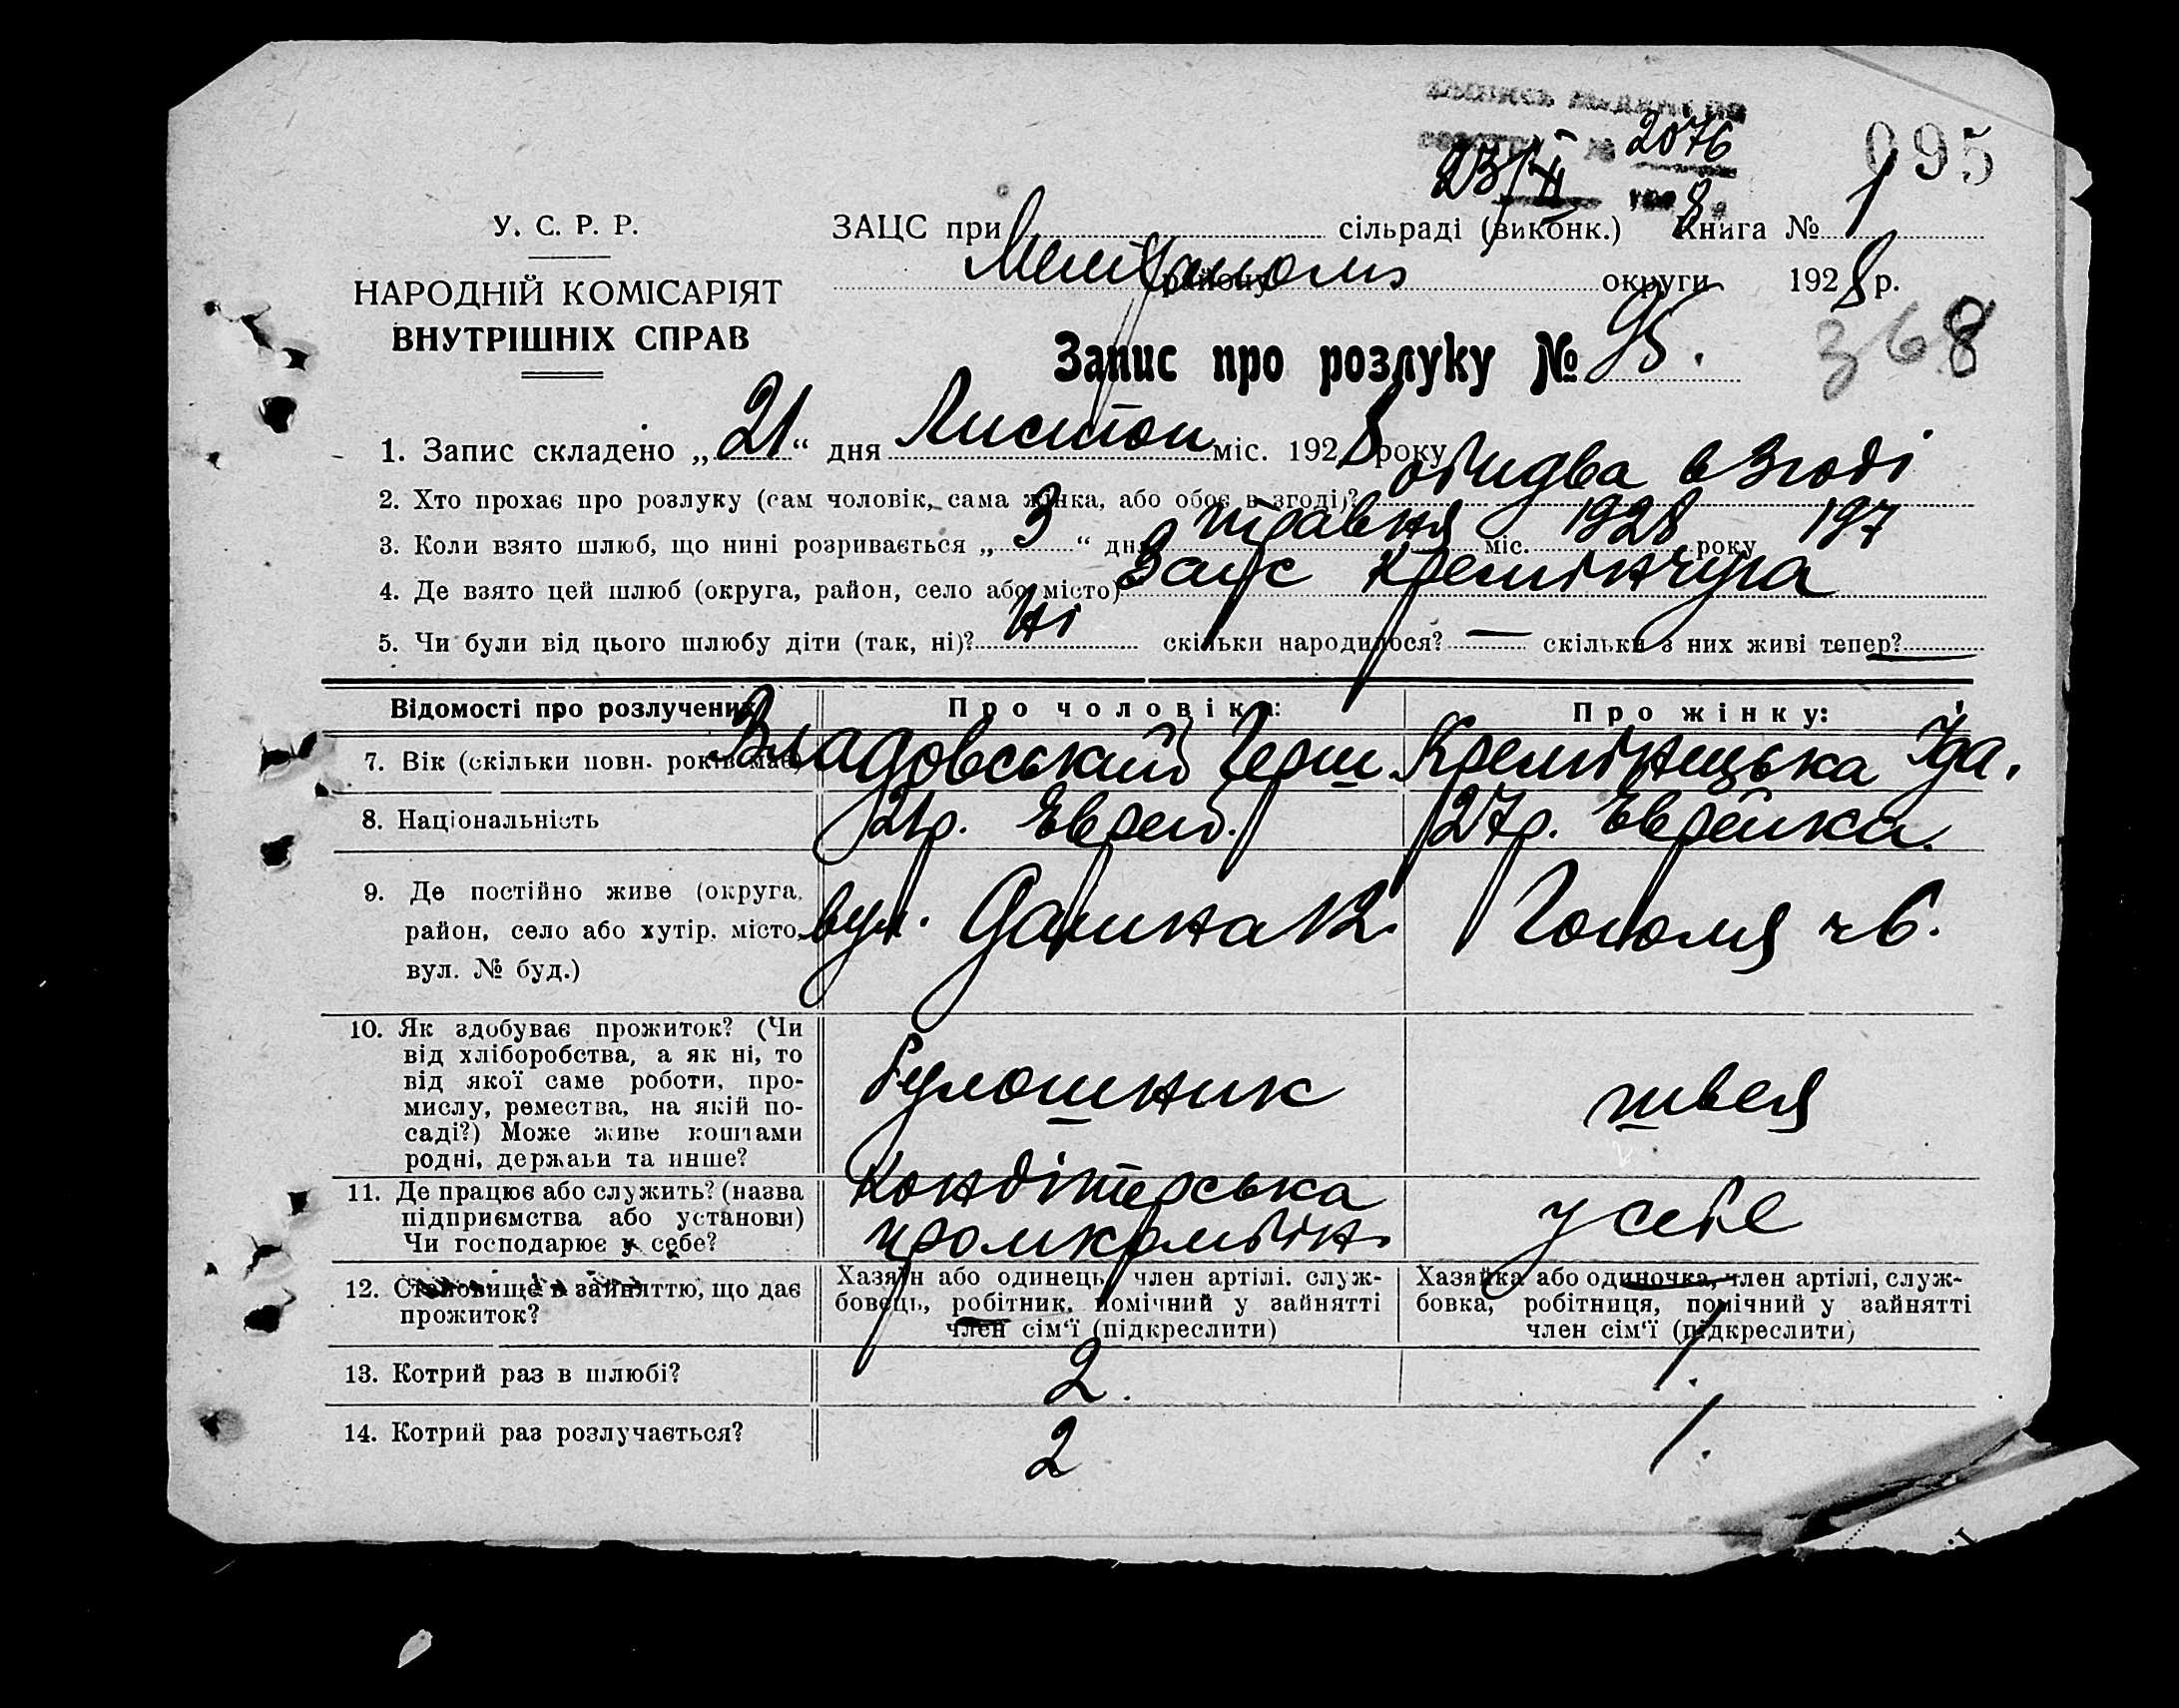 2076
23/XI 8
095
У. С. Р. Р.
ЗАЦС при сільраді (виконк.) Книга № 1
району округи 1928 р.
НАРОДНІЙ КОМІСАРІЯТ
ВНУТРІШНІХ СПРАВ
Запис про розлуку № 95.
368
1. Запис складено „21“ дня Листоп міс. 1928 року
2. Хто прохає про розлуку (сам чоловік, сама жінка, або обоє в згоді)? обидва в згоді
3. Коли взято шлюб, що нині розривається „3“ дня травня міс. 1928 року 197
4. Де взято цей шлюб (округа, район, село або місто) Зацс Кремінчуга
5. Чи були від цього шлюбу діти (так, ні)? Ні скільки народилося? — скільки з них живі тепер? —
Відомості про розлучених
Про чоловіка:
Про жінку:
7. Вік (скільки повн. років має)
Владовський Герш
Кремінецька Іда.
8. Національність
21р. Еврей.
27р. Еврейка.
9. Де постійно живе (округа,
район, село або хутір, місто,
вул. № буд.)
вул. 12.
Гоголя ч 6.
10. Як здобуває прожиток? (Чи
від хліборобства, а як ні, то
від якої саме роботи, про-
мислу, ремества, на якій по-
саді?) Може живе коштами
родні, держави та инше?
булошник
швея
11. Де працює або служить? (назва
підприємства або установи)
Чи господарює у себе?
Кондітерська
промкомбін.
у себе
12. Становище в зайняттю, що дає
прожиток?
Хазяїн або одинець, член артілі, служ-
бовець, робітник, помічний у зайнятті
член сім'ї (підкреслити)
Хазяйка або одиночка, член артілі, служ-
бовка, робітниця, помічний у зайнятті
член сім'ї (підкреслити)
13. Котрий раз в шлюбі?
2.
1.
14. Котрий раз розлучається?
2
1.